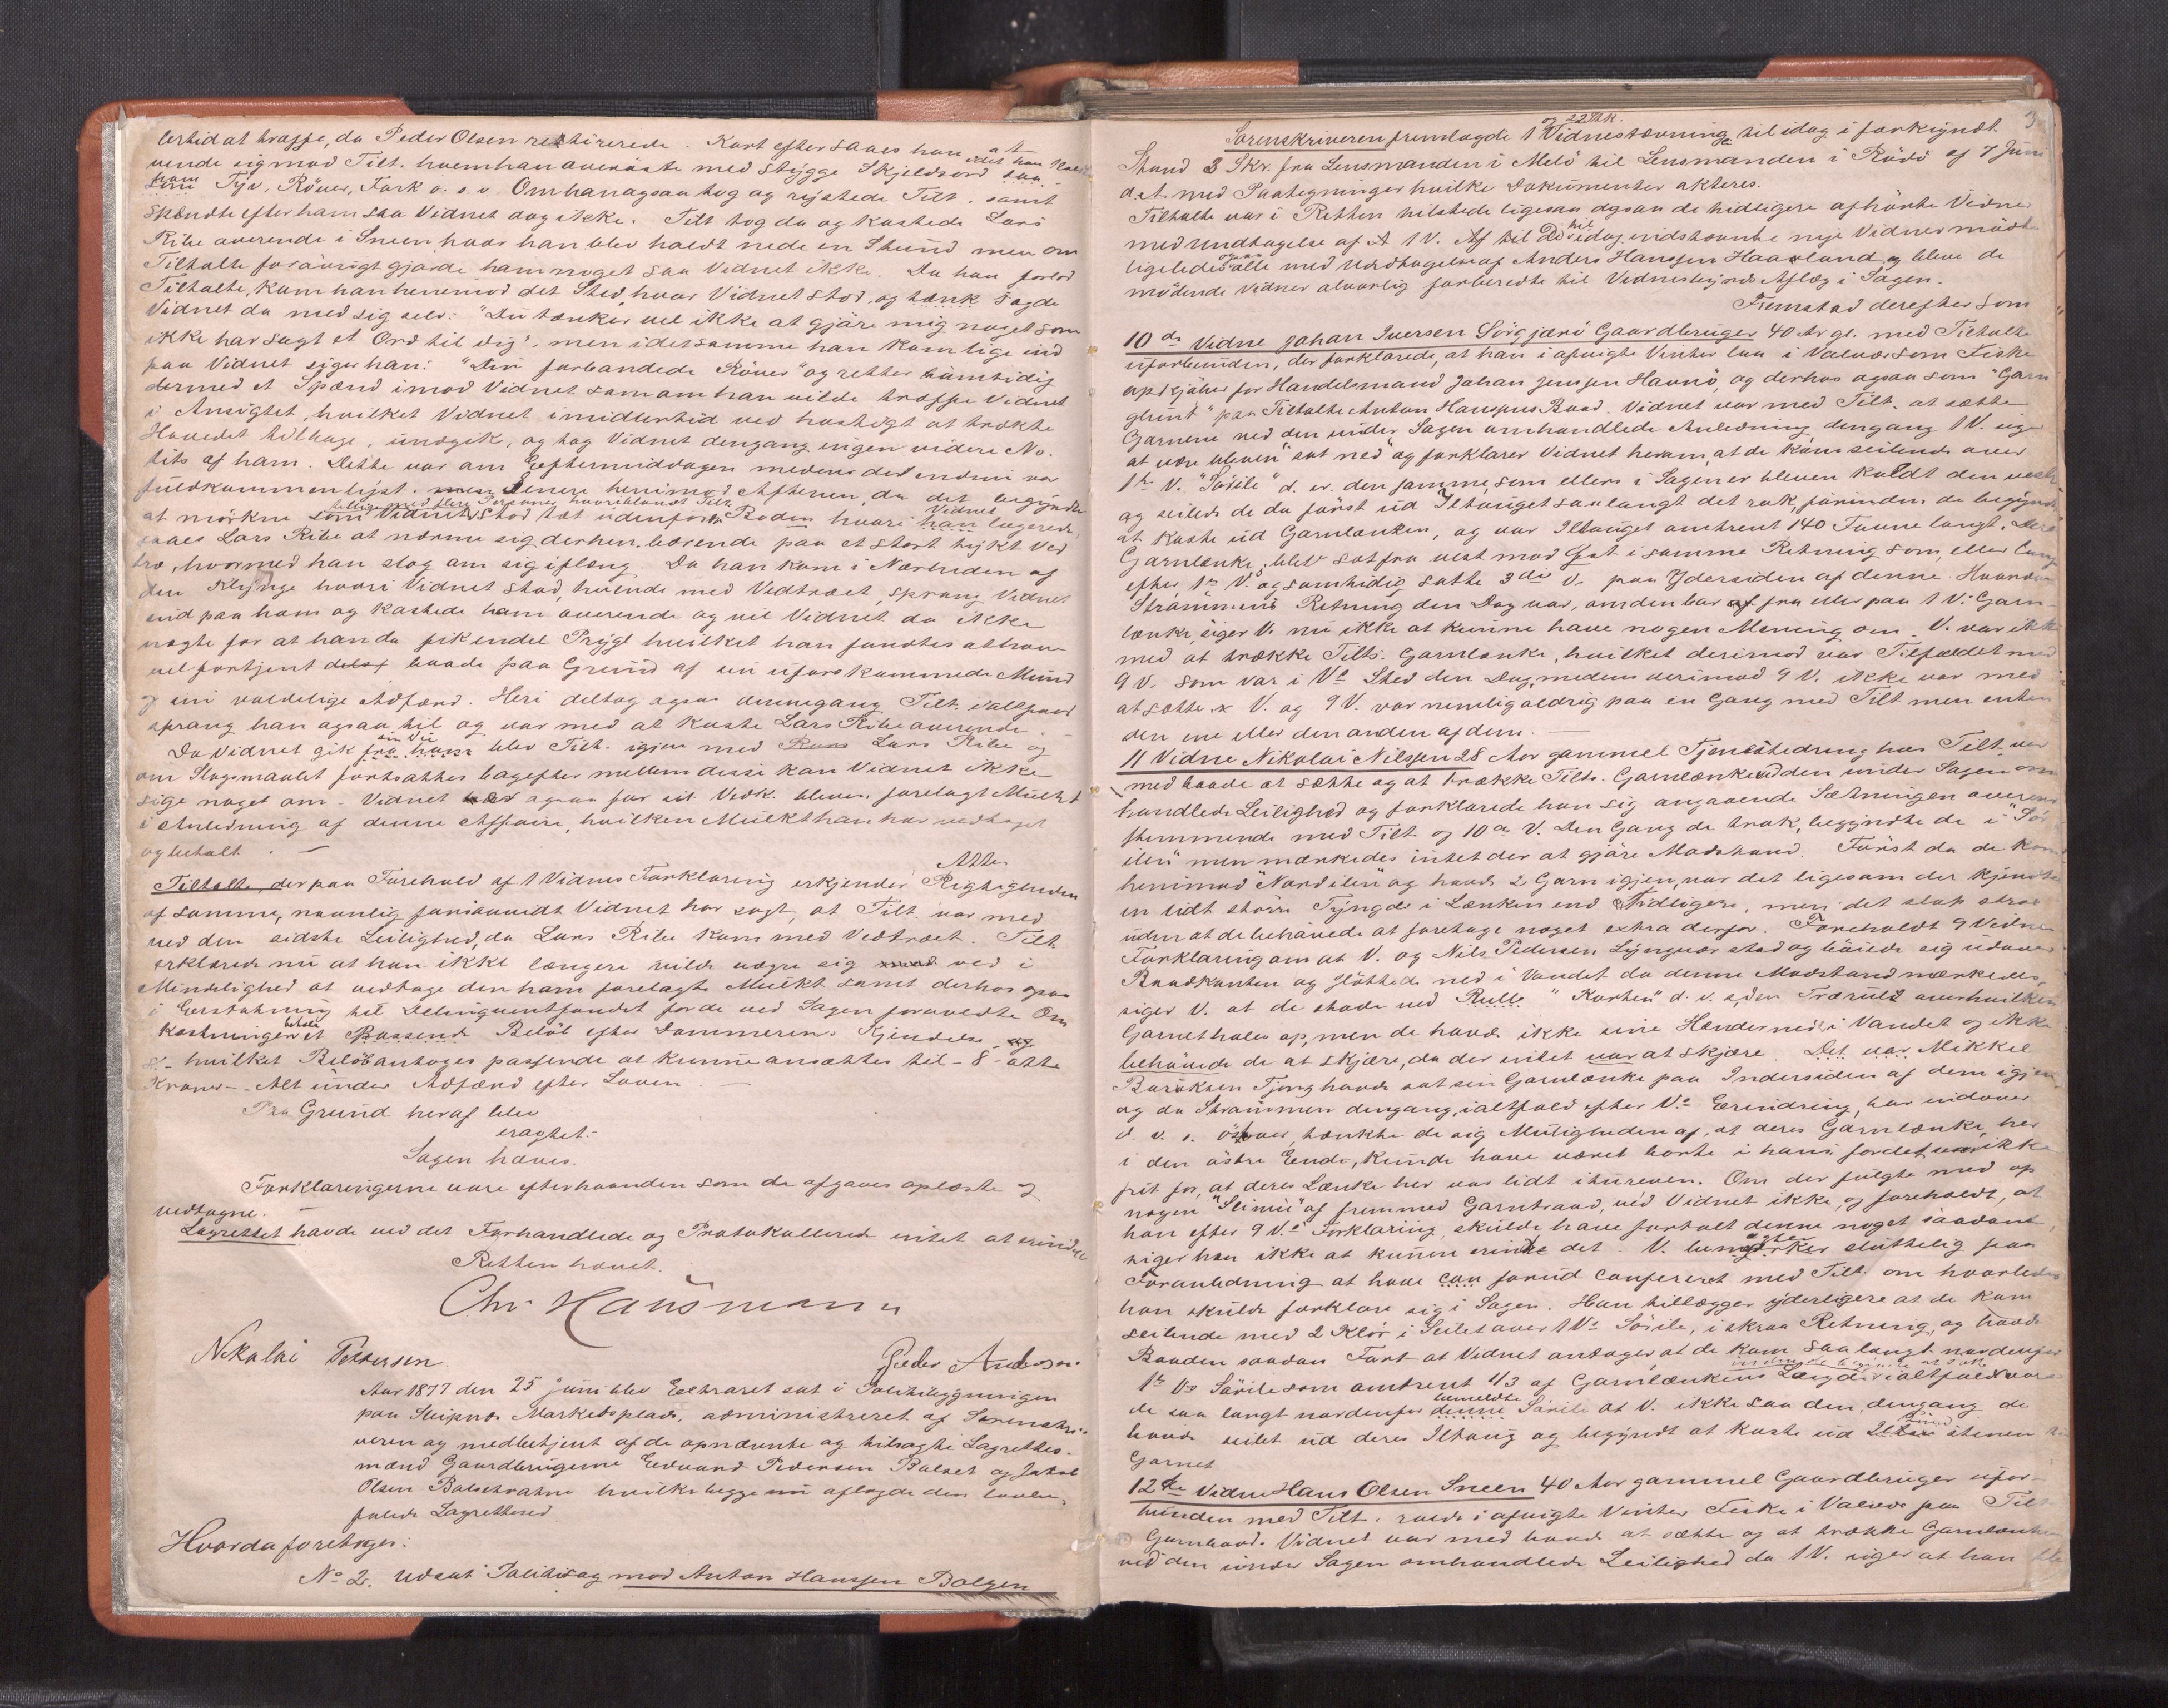 lertid at træffe, da Peder Olsen retirerede. Kort efter saaes han at
vende sig mod Tilt. hvem han overøste med stygge Skjeldsord idet han kaldte
ham Tyv, Røver, Fark o. s. v. Om han ogsaa tog og rystede Tilt. samt
spændte efter ham saa Vidnet dog ikke. Tilt tog da og kastede Lars
Ribe overende i Sneen hvor han blev holdt nede en Stund men om
Tiltalte forøvrigt gjorde ham noget saa Vidnet ikke. Da han forlod
Tiltalte, kom han henimod det Sted, hvor Vidnet stod, og tænk sagde
Vidnet da med sig selv: "Du tænker vel ikke at gjøre mig noget som
ikke har sagt et Ord til dig", men i det samme han kom lige ind
paa Vidnet siger han: "Din forbandede Röver" og retter samtidig
dermed et Spænd imod Vidnet som om han vilde træffe Vidnet
i Ansigtet, hvilket Vidnet imidlertid ved hastigt at trække
Hovedet tilbage, undgik, og tog Vidnet dengang ingen videre No-
tits af ham. Dette var om Eeftermiddagen medens det endnu var
fuldkommen lyst. Senere henimod Aftenen, da det begyndte
at mörkne som Vidnet tillige med flere Personer hvoriblandt Tilt. stod tæt udenfor Boden hvori Vidnet logerede,
saaes Lars Ribe at nærme sig derhen bærende paa et stort tykt Ved-
træ, hvormed han slog om sig iflæng. Da han kom i Nærheden af
den Klynge hvori Vidnet stod, truende med Vedtræet, sprang Vidnet
ind paa ham og kastede ham overende og vil Vidnet da ikke
nægte for at han da fik endel Prygl hvilket han fandtes at have
vel fortjent baade paa Grund af sin uforskammede Mund
og sin voldelige Adfærd. Heri deltog ogsaa dennegang Tilt. ialfald
sprang han ogsaa til og var med at kaste Lars Ribe overende.
Da Vidnet gik sin Vei blev Tilt. igjen med Lars Ribe og
om Slagsmaalet fortsattes bagefter mellem disse kan Vidnet ikke
sige noget om. Vidnet er ogsaa for sit Vedk. bleven forelagt Mulkt
i Anledning af denne Affaire, hvilken Mulkt han har vedtaget
og betalt. —
Tiltalte, der paa Forehold af 1 Vidnes Forklaring erkjender Rigtigheden
af samme, navnlig forsaavidt Vidnet har sagt, at Tilt var med
ved den sidste Leilighed, da Lars Ribe kom med Vedtræet. Tilt
erklærede nu at han ikke længere vilde vægre sig ved i
Mindelighed at vedtage den ham forelagte Mulkt samt derhos ogsaa
i Erstatning til Delinquentfondet for de ved Sagen foraarsagede Om-
kostninger betale et Passende Belöb efter Dommerens Kjendelse
hvilket Belöb antages passende at kunne ansættes til – 8 – otte
Kroner – Alt under Adfærd efter Loven. —
Paa Grund heraf blev
eragtet:
Sagen hæves.
Forklaringerne vare efterhaanden som de afgaves oplæste og
vedtagne. —
Lagrettet havde ved det Forhandlede og Protokollerede intet at erindre
Retten hævet.
Chr Hausmann
Nikolai Pettersen. Peder Andersen
Aar 1877 den 25 Juni blev Extraret sat i Politibygningen
paa Sleipnæs Markedsplads, administreret af Sorenskri-
veren og medbetjent af de opnævnte og tilsagte Lagrettes-
mænd Gaardbrugerne Edvard Pedersen Balset og Jakob
Olsen Batschrahne hvilke begge nu aflagde den lovbe-
falede Lagrettesed
Hvorda foretages:
No 2. Udsat Politisag mod Anton Hanssen Bolgen
3
Sorenskriveren fremlagde 1 Vidnestævning til idag i forkyndt
Stand 3 Skr. fra Lensmanden i Melö til Lensmanden i Rödö af 7 Juni
d. A. med Paategninger hvilke Dokumenter akteres.
Tiltalte var i Retten tilstede ligesaa ogsaa de tidligere afhörte Vidner
med Undtagelse af 1 V. Af de til idag indstævnte nye Vidner mödte
ligeledes alle med Undtagelse af Anders Hanssen Haarland og bleve de
mödende Vidner alvorlig forberedte til Vidnesbyrds Aflæg i Sagen.
Fremstod derefter som
10de Vidne Johan Iversen Sörgjærö Gaardbruger 40 Ar gl. med Tiltalte
uforbunden, der forklarede, at han i afvigte Vinter laa i Valvær som Fiske
opkjöber for Handelsmand Johan Jenssen Havnö, og derhos ogsaa som "Garn
glunt" paa Tiltalte Anton Hanssens Baad. Vidnet var med Tilt. at sætte
Garnene ved den under Sagen omhandlede Anledning dengang 1 V. siger
at være bleven "sat ned" og forklarer Vidnet herom, at de kom seilende over
1ste V. "Sörile" d. er. den samme som ellers i Sagen er bleven kaldt den vestre
og seilede de da först ud Iltouget saalangt det rak, førinden de begyndte
at kaste ud Garnlænken, og var Iltouget omtrent 140 Favne langt. Deres
Garnlænke blev sat fra vest mod Öst i samme Retning som, eller langs
efter, 1ste V. og samtidig satte 3die V. paa Ydersiden af denne. Hvordan
Strömmens Retning den Dag var, om den bar fra eller paa 1 V. Garn-
lænke, siger V. nu ikke at kunne have nogen Mening om. V. var ikke
med at trække Tilts. Garnlænke, hvilket derimod var Tilfældet med
9 V. som var i Vs Sted den Dag, medens derimod 9 V. ikke var med
at sætte. V. og 9 V. var nemlig aldrig paa en Gang med Tilt men enten
den ene eller den anden af dem. —
11 Vidne Nikolai Nilssen 28 Aar gammel Tjenestedreng hos Tilt. var
med baade at sætte og at trække Tilts. Garnlænke ved den under Sagen om-
handlede Leilighed og forklarede han sig angaaende Sætningen overens-
stemmende med Tilt og 10de V. Den Gang de trak, begyndte de i "Sör
ilen" men mærkedes intet der at gjöre Modstand. Först da de kom
henimod "Nordilen" og havde 2 Garn igjen, var det ligesom der kjendtes
en lidt större Tyngde i Lænken end tidligere, men det slap strax
uden at de behövede at foretage noget extra derfor. Foreholdt 9 Vidnes
Forklaring om at V. og Nils Pedersen Lyngvær stod og böiede sig udover
Baadkanten og flöttede ned i Vandet da denne Modstand mærkedes,
siger V. at de stode ved Rulle "Karten" d. v. s. den Trærulle over hvilken
Garnet hales op, men de havde ikke sine Hænder nede i Vandet og ikke
behövede de at skjære, da der intet var at skjære. Det var Mikkel
Baröksen Tjong havde sat sin Garnlænke paa Indersiden af dem igjen
og da Strömmen dengang, ialtfald efter Vs Erindring, bar indover
d. v. s. östover, tænkte de sig Muligheden af, at deres Garnlænke her
i den östre Ende, kunde have været borte i hans fordet var ikke
frit for, at deres Lænke her var lidt ihureven. Om der fulgte med op
nogen "Slimu" af fremmed Garntraad, ved Vidnet ikke, og foreholdt, at
han efter 9 Vs Forklaring skulde have fortalt denne noget saadant,
siger han ikke at kunne erindre det. V. benegter sluttelig paa
Foranledning at have forud confereret med Tilt. om hvorledes
han skulde forklare sig i Sagen. Han tillægger yderligere at de kom
seilende med 2 Klör i Seilet over 1 Vs Sörile, i skraa Retning, og havde
Baaden saadan Fart at Vidnet antager, at de kom saa langt nordenfor
1ste Vs Sörile som omtrent 1/3 af Garnlænkens Længde inden de begyndte at sætte ialtfald vare
de saa langt nordenfor bemeldte Sörile at V. ikke saa den, dengang de
havde seilet ud deres Iltoug og begyndt at kaste ud
Garnet
12te Vidne Hans Olsen Sneen 40 Aar gammel Gaardbruger ufor-
bunden med Tilt. roede i afvigte Vinter Fiske i Valvær paa Tilt
Garnbaad. Vidnet var med baade at sætte og at trække Garnlænken
ved den under Sagen omhandlede Leilighed da 1 V. siger at han